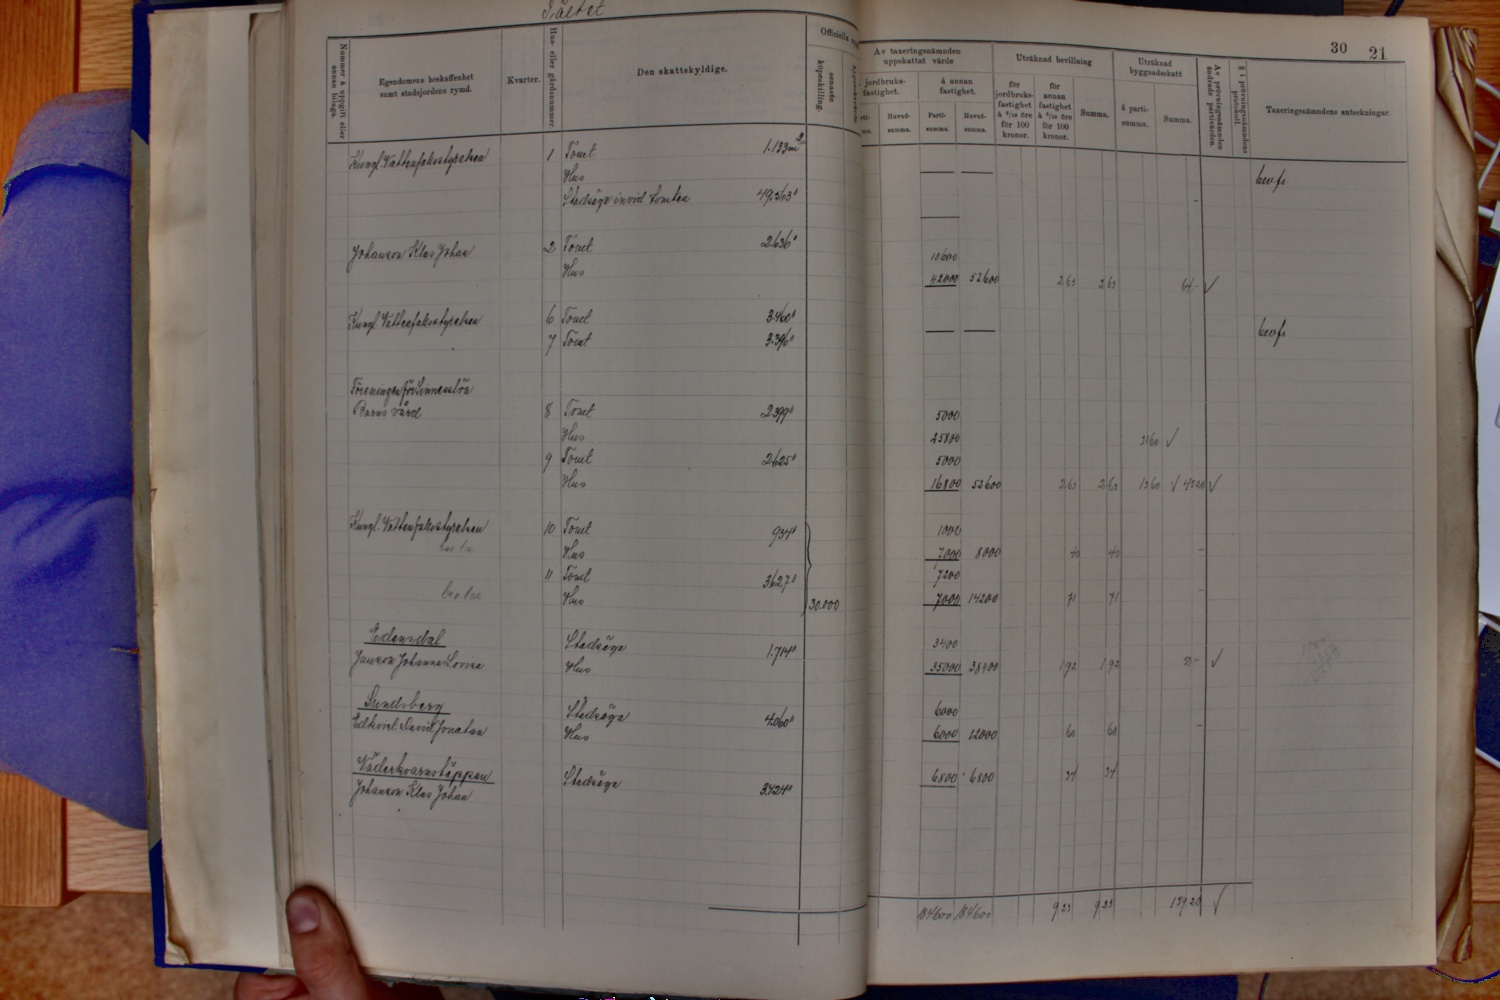 30 21
Nummer å uppgift eller annan bilaga.
Egendomens beskaffenhet samt stadsjordens rymd.
Kvarter.
Hus- eller gårdsnummer.
Den skattskyldige.
Officiella
senaste köpeskilling.
Av taxeringsnämnden uppskattat värde
jordbruks-fastighet.
å annan fastighet.
Huvud-summa.
Parti-summa.
Huvud-summa.
Uträknad bevillning
för jordbruks-fastighet
för 100 kronor.
för annan fastighet
för 100 kronor.
Summa.
Uträknad byggnadsskatt
å parti-summa.
Summa.
Av prövningsnämnden ändrade partivärden
§ i prövningsnämndens protokoll
Taxeringsnämndens anteckningar.
Kungl. Vattenfallsstyrelsen 1 Tomt 1.133 m2
Hus bevfr
Stadsäga invid tomten 49.363"
Johanson Klas Johan 2 Tomt 2636" 10600
Hus 42000 52600 2,63 2,63 64.-
Kungl. Vattenfallsstyrelsen 6 Tomt 3.460" bevfr
7 Tomt 3.396"
Föreningen för Sinnesslöa
Barns vård 8 Tomt 2399" 5000
Hus 25800 3160
9 Tomt 2625" 5000
Hus 16800 52600 2,63 2,63 1360 4520
Kungl. Vattenfallsstyrelsen 10 Tomt 934" 1000
Hus 7000 8000 40 40
11 Tomt 3627" 7200
Hus 30.000 7000 14200 71 71
Edensdal Stadsäga 1.714" 3400
Janson Johanna Lovisa Hus 35000 38400 1,92 1,92
Sundsberg Stadsäga 4.060" 6000
David Jonatan Hus 6000 12000 60 60
Väderkvarnstäppan Stadsäga 6800 6800 34 34
Johanson Klas Johan 3.424"
184600 184600 9,23 9,23 139,20